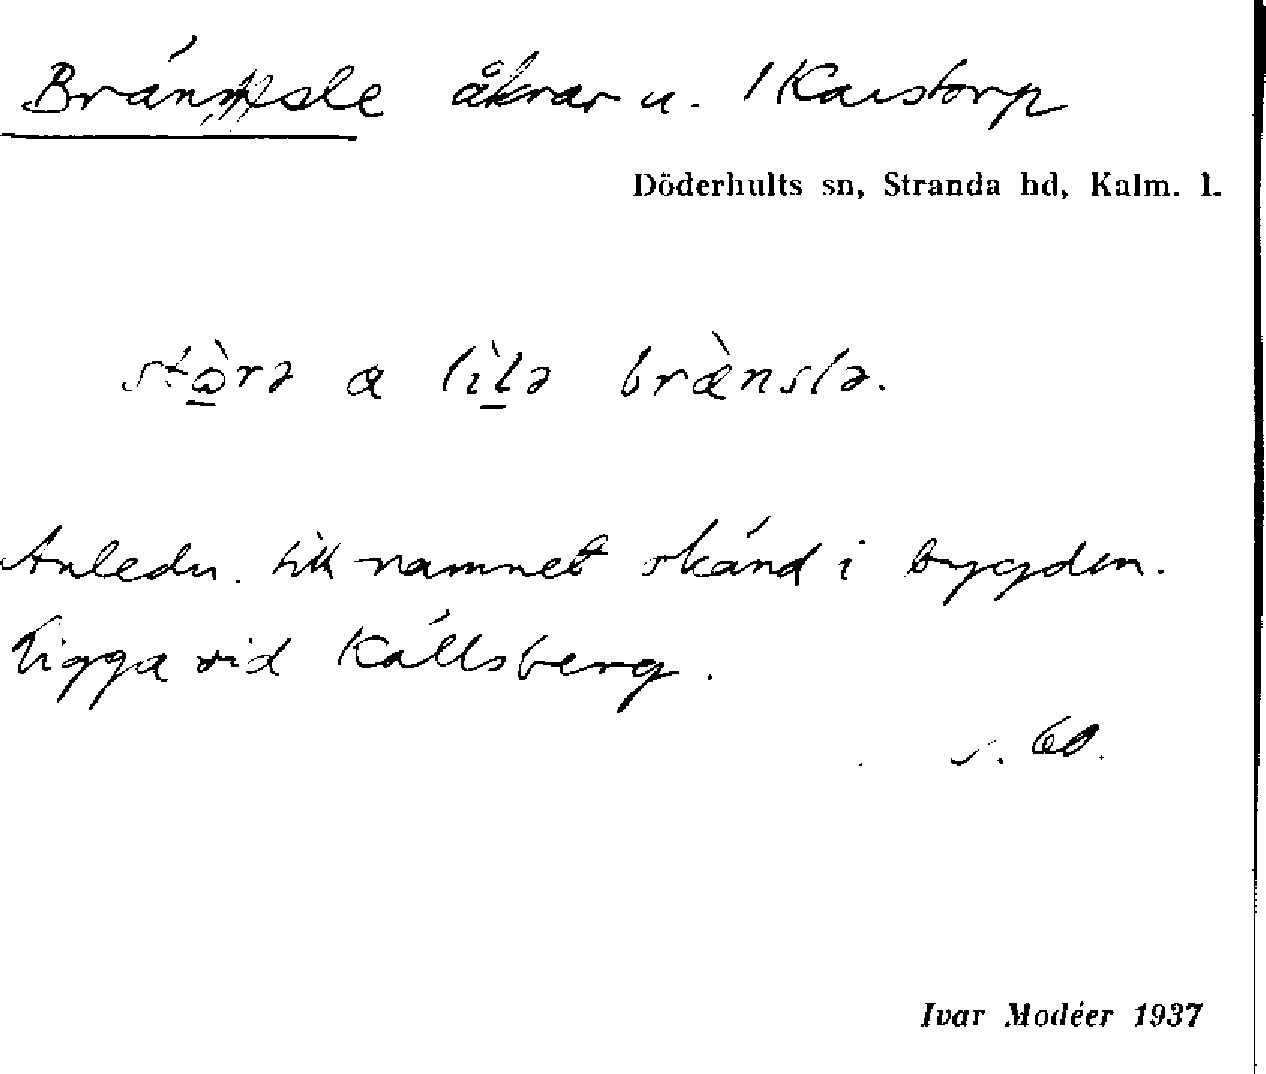 Brännsle åkrar u. 1 Karstorp
Döderhults sn, Stranda hd, Kalm. l.
stɷ̀rə a lìlə brænslə.
Anledn. till namnet okänd i bygden.
Ligga vid Källsberg.
s. 60.
Ivar Modéer 1937